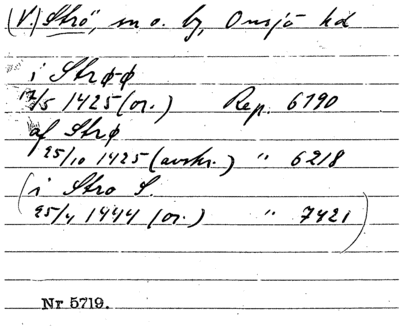 (V.) Strö, sn o. by, Onsjö hd
i Strøø
17/5 1425 (or.) Rep. 6190
af Strø
25/10 1425 (avskr.) " 6218
(i Stro S.
25/4 1444 (or.) " 7421)
Nr 5719.